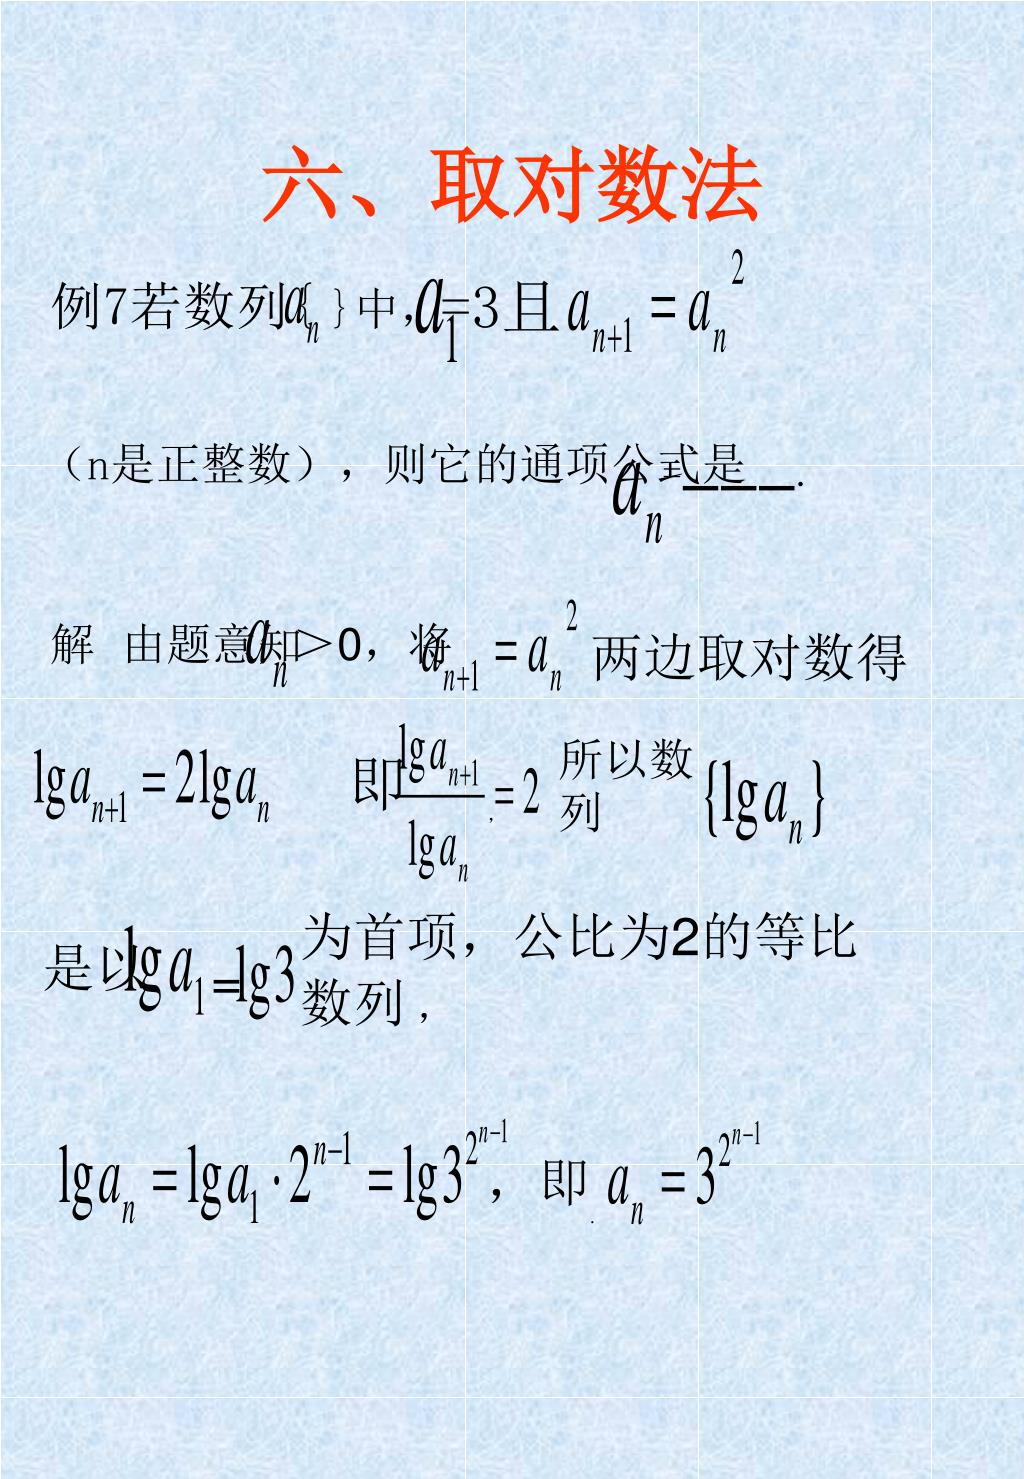 六、取对数法
例7若数列{aₙ}中,a₁=3且aₙ₊₁=aₙ²
（n是正整数）,则它的通项公式是aₙ ———.
解 由题意知aₙ>0，将aₙ₊₁=aₙ²两边取对数得
lgaₙ₊₁=2lgaₙ 即 lgaₙ₊₁/lgaₙ=2, 所以数列{lgaₙ}
是以lga₁=lg3为首项，公比为2的等比
数列，
lgaₙ=lga₁·2ⁿ⁻¹=lg3^{2ⁿ⁻¹}，即aₙ=3^{2ⁿ⁻¹}.